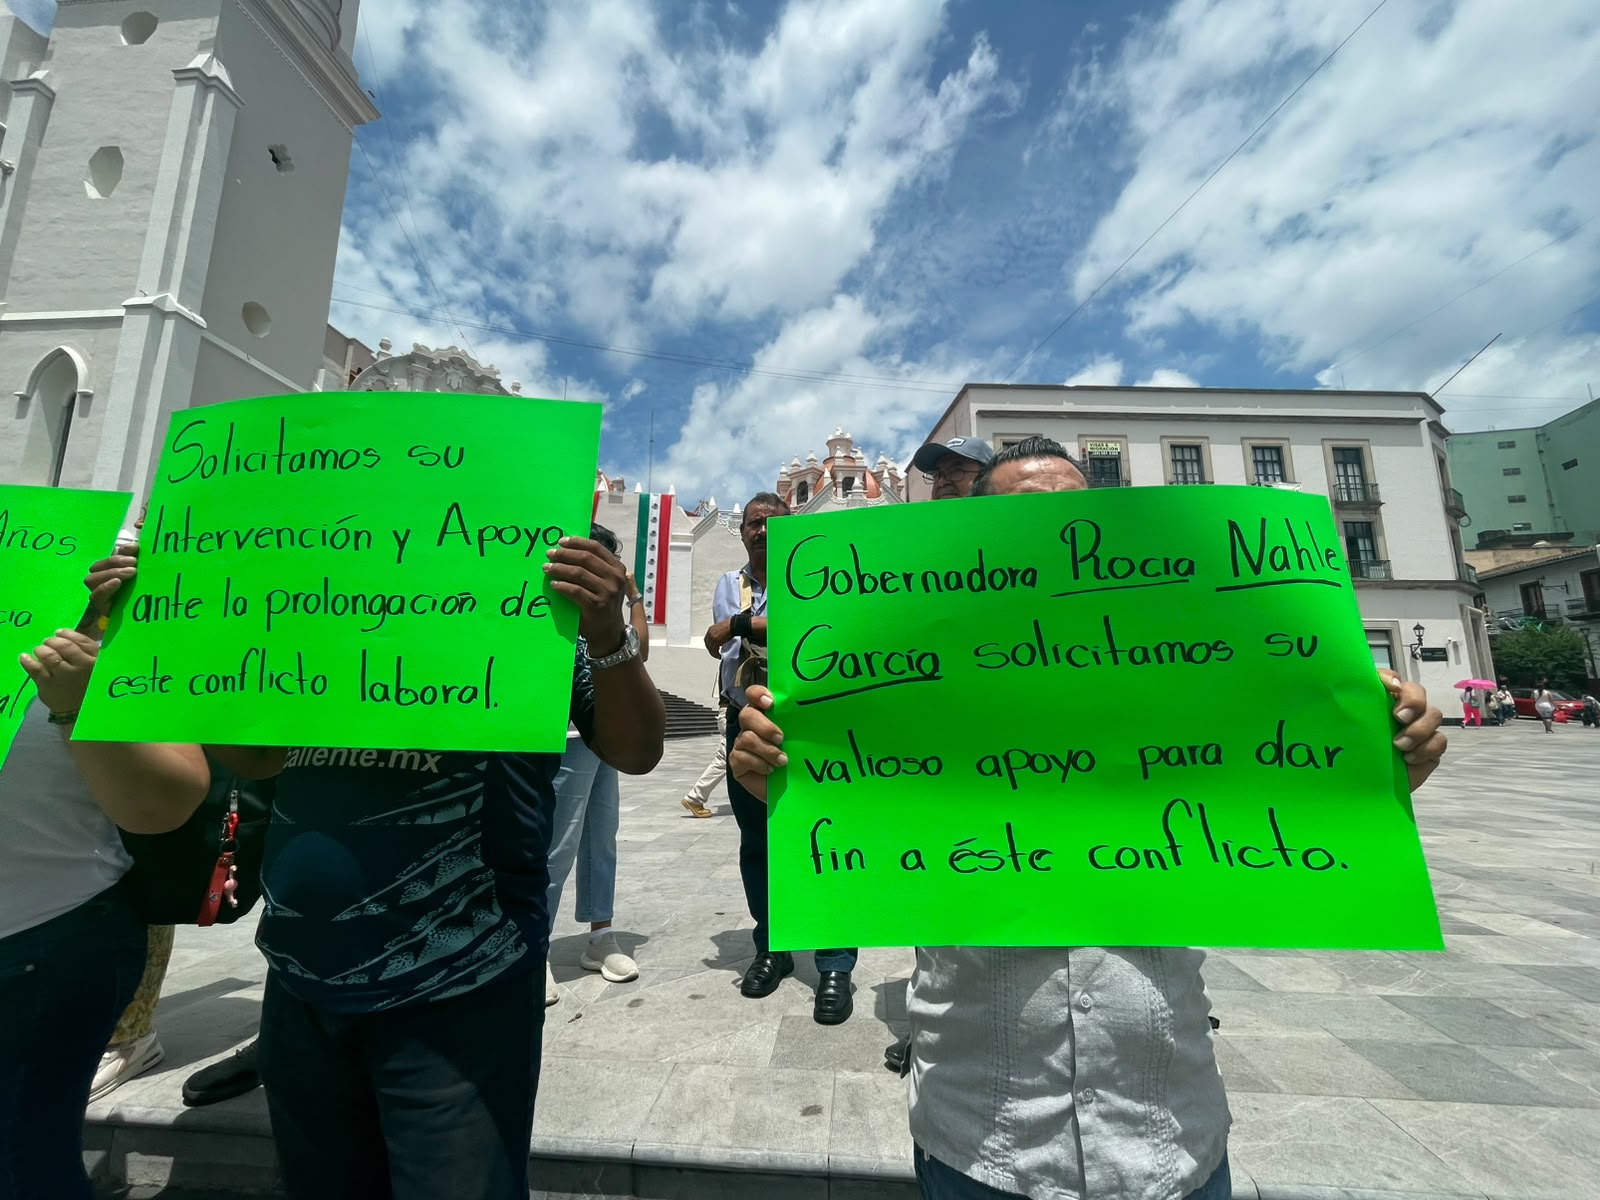 Años
Solicitamos su
Intervención y Apoyo
ante la prolongación de
este conflicto laboral.
Gobernadora Rocía Nahle
García solicitamos su
valioso apoyo para dar
fin a éste conflicto.
caliente.mx